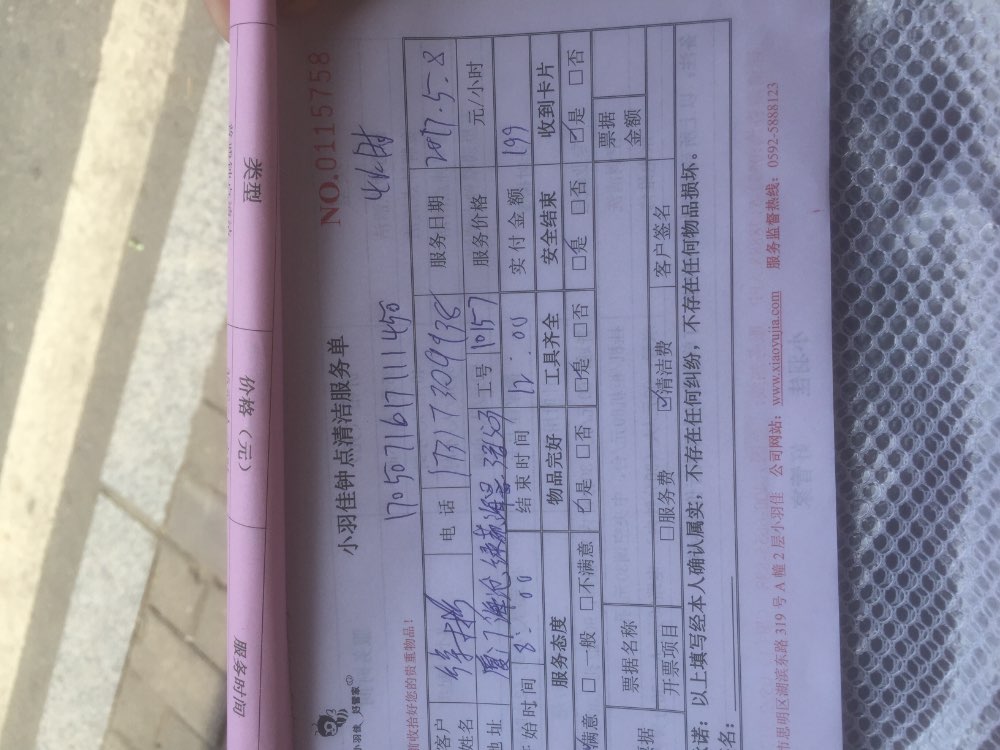 服务时间 价格（元） 类型
小羽佳 好管家
小羽佳钟点清洁服务单
NO.0115758
前收拾好您的贵重物品！
17050716171111450
4小时
客户姓名
电 话 13173099938
服务日期 2017.5.8
地址 厦门海沧绿苑海景
工号 1015
服务价格 元/小时
开始时间 8:00
结束时间 12:00
实付金额 199
服务态度 物品完好 工具齐全 安全结束 收到卡片
满意 □一般 □不满意 ☑是 □否 ☑是 □否 ☑是 □否 ☑是 □否
票据名称
票据金额
票据
开票项目 □服务费 ☑清洁费
客户签名
诺：以上填写经本人确认属实，不存在任何纠纷，不存在任何物品损坏。
名：
市思明区湖滨东路 319 号 A 幢 2 层小羽佳 公司网站：www.xiaoyujia.com 服务监督热线：0592-5888123